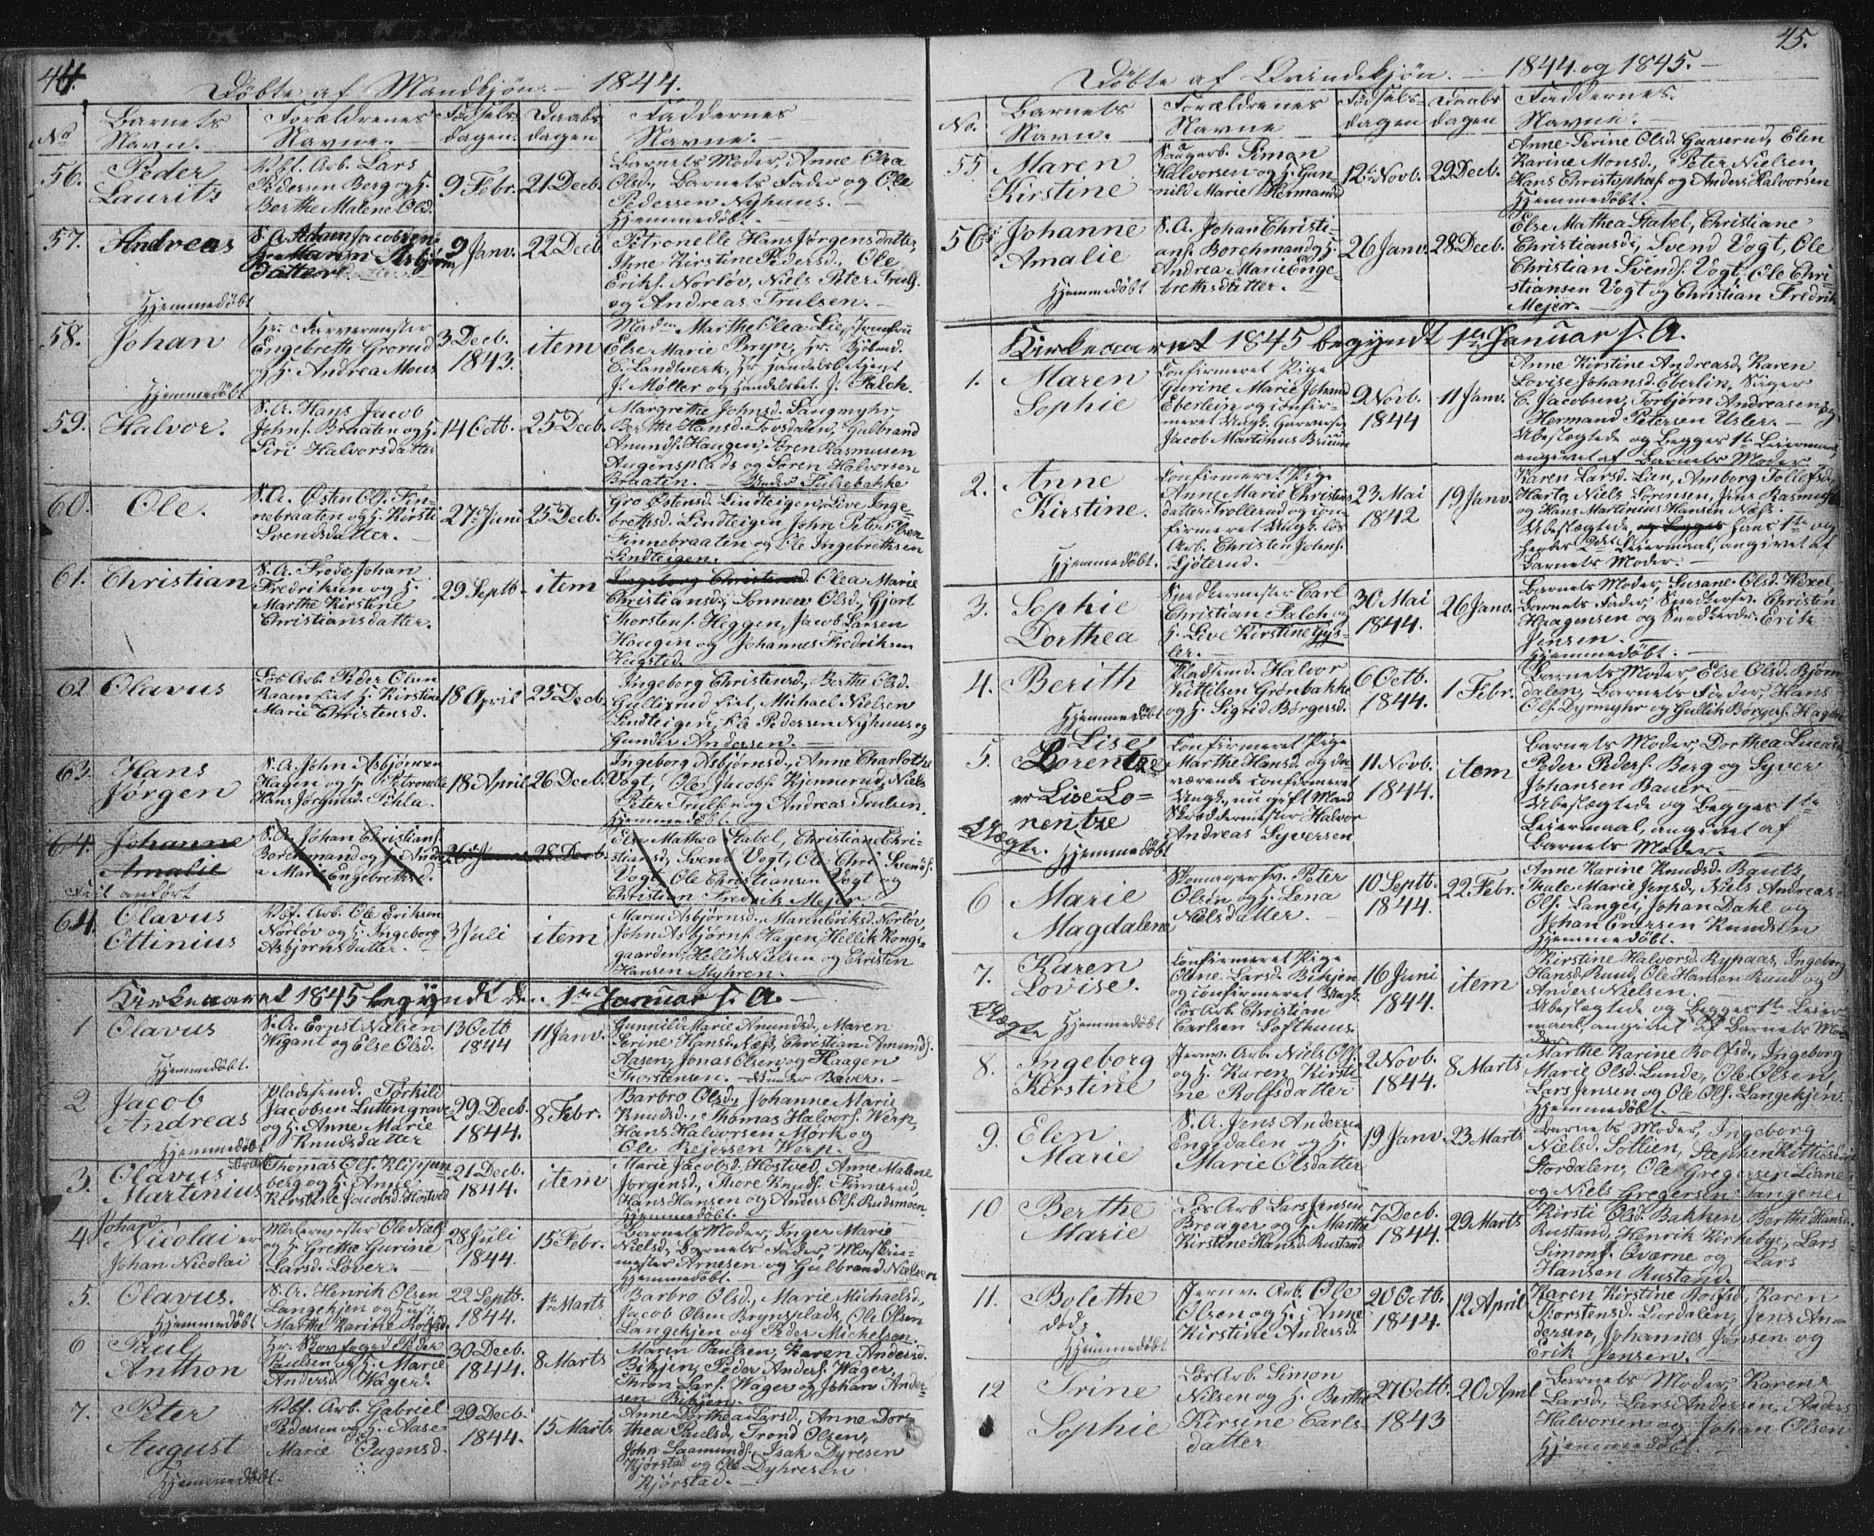 44.
Döbte af Mandkjön. — 1844.
No
Barnets
Navn.
Forældrenes
Navne.
Födsels-
dagen.
Daabs
dagen
Faddernes
Navne.
56.
Peder
Laurits
Arb. Lars
Pedersen Berg og H.
Berthe Malene Olsd.
9 Febr.
21 Decb.
Barnets Moder, Anne Olea
Olsd., Barnets Fader og Ole
Pedersen Nyhuus.
Hjemmedöbt.
57.
Andreas
Hjemmedöbt
S. A. Adam Jacobsen
Maren Asbjörns
datter
9 Janv.
22 Decb.
Petronelle Hans Jörgensdatter,
Ane Kirstine Pedersd., Ole
Eriks. Norlöv, Niels Peter Truls.
og Andreas Trulsen.
58.
Johan
Hjemmedöbt
Hr. Farvermester
Engebreth Grorud
og H. Andrea Mons
3 Decb.
1843.
item
Madm Marthe Olea Lie, Jomfru
Else Marie Bryn, Hr.
C. Landwerk, Hr. Handelsbetjent
J. Möller og Handelsbet. J. Falch.
59.
Halvor.
S. A. Hans Jacob
Johns. Braaten og H.
Siri Halvorsdatter
14 Octb.
25 Decb.
Margrethe Johnsd. Saugmyhr,
Berthe Hansd. Fovsdalen, Gulbrand
Amunds. Haugen, Sören Rasmusen
Augensplads og Sören Halvorsen
Braaten.
60.
Ole.
S. A. Östen Ols. Fin-
nebraaten og H. Kirsti
Svendsdatter.
27 Juni
25 Decb.
Gro Östensd. Lindteigen, Live Inge-
brethsd. Lindteigen, John Peter Olsen
Finnebraaten og Ole Ingebrethsen
Lindteigen.
61.
Christian
S. A. Frode Johan
Fredriksen og H.
Marthe Kirstine
Christiansdatter.
29 Septb.
item
Ingeborg Christensd. Olea Marie
Christiansd., Sonnew Olsd., Gjert
Thorstens. Heggen, Jacob Larsen
Haugen og Johannes Fredriksen
Krigsted.
62
Olavus
Lös Arb. Peder Olsen
Raaen og H. Kirstine
Marie Christensd.
18 April
25 Decb.
Ingeborg Christensd., Berthe Olsd.
Gulliksrud, Michael Nielsen
Lindteigen, Ole Pedersen Nyhuus og
Gunder Andersend.
63.
Hans
Jörgen
S. A. John Asbjörnsen
Hagen og H. Petronelle
Hans Jörgensd. Pihla.
18 April
26 Decb.
Ingeborg Asbjörnsd., Anne Charlothe
Vogt, Ole Jacobs. Kjennerud, Niels
Peter Trulsen og Andreas Trulsen.
Hjemmedöbt.
64.
Johanne
Amalie
Feil anfört
S. A. Johan Christians.
Borchmand og H. Andre
a Marie Engebrethsd.
26 Janv.
28 Decb.
Else Mathea Stabel, Christiane Chri-
stiansd., Svend Vogt, Ole Chri. Svends.
Vogt, Ole Christiansen Vogt og
Christian Fredrik Mejer.
64.
Olavus
Ottinius
Arb. Ole Eriksen
Norlöv og H. Ingeborg
Asbjörnsdatter.
3 Juli
item
Maren Asbjörnsd., Maren Eriksd. Norlöv,
John Asbjörns. Hagen, Hellik Kongs-
gaarden, Hellik Nielsen og Christen
Hansen Myhren.
Kirkeaaret 1845 begyndt den 1ste Januar s. A.
1
Olavus
Hjemmedöbt.
S. A. Ernst Nielsen
Wigant og Else Olsd.
13 Octb
1844
11 Janv.
Gunnild Marie Amundsd., Maren
Serine Hansd. Næss, Christian Amunds.
Aasen, Jonas Olsen og Haagen
Thorstensen.
2
Jacob
Andreas
Hjemmedöbt
Pladsmd. Torkild
Jacobsen Luttengrave
og H. Anne Marie
Knudsdatter
29 Decb.
1844.
8 Febr.
Barbro Olsd., Johanne Marie
Knudsd., Thomas Halvors. Werp,
Hans Halvorsen Mörk og
Ole Rejersen Werp.
3.
Olavus
Martinius
Thomas Ols. Klippen-
berg og H. Anne
Kirstine Jacobsd. Hostved
21 Decb.
1844.
item
Marie Jacobsd. Hostved, Anne Malene
Jörgensd., Thore Knuds. Tinnerud,
Hans Hansen og Anders Ols. Rudsmoen.
Hjemmedöbt.
4
Johan
Nicolai er
Johan Nicolai
Malermester Ole Næss
og H. Grethe Gurine
Larsd. Lover.
28 Juli
1844.
15 Febr.
Barnets Moder, Inger Marie
Nielsd., Barnets Fader, Maskin-
mester Arnesen og Gulbrand Nielsen
Hjemmedöbt.
5.
Olavus.
Hjemmedöbt
S. A. Henrik Olsen
Langekjen og Hust.
Marthe Karine Rolfsd.
22 Septb.
1844.
1ste Marts
Barbro Olsd., Marie Michaelsd.,
Jacob Olsen Brynsplads, Ole Olsen
Langekjen og Peder Michelsen.
6
Paul
Anthon
Hr. Skovfoged Peder
Paulsen og H. Marie
Andersd. Wager.
30 Decb.
1844.
8 Marts
Maren Paulsen, Karen Andersd.
Bikjen, Peder Anders. Wager,
Thron Lars. Wager og Johan Ander-
sen Bikjen.
7.
Peter
August
Hjemmedöbt.
Arb. Gabriel
Pedersen og H. Aase
Marie Pagensd.
29 Decb.
1844.
15 Marts
Anne Dorthea Larsd., Anne Dor-
thea Paulsd., Trond Olsen,
John Saamunds., Isak Dyresen
Kjörstad og Ole Dyhresen
Kjörstad.
45.
Döbte af Qvindekjön. — 1844 og 1845.
No.
Barnets
Navn.
Forældrenes
Navne
Födsels-
dagen
Daabs
dagen
Faddernes
Navne.
55
Maren
Kirstine
Saugarb. Simon
Halvorsen og H. Gun-
nild Marie Hermansd
12te Novb.
29 Decb.
Anne Serine Olsd. Gaaserud, Elen
Karine Monsd., Peter Nielsen,
Hans Christophers. og Anders Halvorsen
Hjemmedöbt.
56
Johanne
Amalie
Hjemmedöbt
S. A. Johan Christi-
ans. Borchmand og H.
Andrea Marie Enge-
brethsdatter.
26 Janv.
28 Decb.
Else Mathea Stabel, Christiane
Christiansd., Svend Vogt, Ole
Christian Svends. Vogt, Ole Chri-
stiansen Vogt og Christian Fredrik
Mejer.
Kirkeaaret 1845 begyndt 1ste Januar s. A.
1.
Maren
Sophie
Confirmeret Pige
Gurine Marie Johansd
Eberlein og confir-
meret Ungk. Garversv.
Jacob Martinus Bruun
9 Novb.
1844
11 Janv.
Anne Kirstine Andreasd., Karen
Lovise Johansd. Eberlin, Suger
C. Jacobsen, Torbjörn Andreasen og
Hermand Petersen Usler.
Ubeslægtede og begges 1ste Leiermaal
angivet af Barnets Moder
2.
Anne
Kirstine.
Hjemmedöbt.
Confirmeret Pige
Anne Marie Christens
datter Trollerud og con-
firmeret Ungk. Lös
Arb. Christen Johns.
Sjöterud.
23 Mai
1842
19 Janv.
Karen Larsd. Lien, Amborg Tollefsd.
Harta, Niels Sörensen, Jens Rasmusen
og Hans Martinius Hansen Næss.
Ubeslægtede og begges hans 1ste og
hendes 2det Leiermaal, angivet af
Barnets Moder.
3.
Sophie
Dorthea
Snedkermester Carl
Christian Falch og
H. Live Kirstine Gys-
ler.
30 Mai
1844.
26 Janv.
Barnets Moder, Susane Olsd. Hexel,
Barnets Fader, Snedkersv. Christen
Haagensen og Snedkerdr. Erik
Jensen.
Hjemmedöbt.
4.
Berith
Hjemmedöbt
Pladsmd. Halvor
Kittilsen Grönbakke
og H. Sigrid Börgersd.
6 Octb.
1844.
1 Febr.
Barnets Moder, Else Olsd. Björn-
dalen, Barnets Fader, Hans
Ols. Dyrmyhr og Gullik Börgers. Hagen
5.
Lise
Lorentze
er Lise Lo-
rentze
Uægte.
Hjemmedöbt
Confirmeret Pige
Marthe Hansd. og da-
værende confirmeret
Ungk., nu gift Mand
Skræddermester Halvor
Andreas Syversen
11 Novb.
1844.
item
Barnets Moder, Dorthea Lucasd.,
Peder Peders. Berg og Syver
Johansen Bauer.
Ubeslægtede og begges 1ste
Leiermaal, angivet af
Barnets Moder.
6
Marie
Magdalene
Skomagersv. Peter
Olsen og H. Lena
Nielsdatter.
10 Septb.
1844.
22 Febr.
Anne Karine Knudsd. Bautz,
Thale Marie Jensd., Niels Andreas
Ols. Langei, Johan Dahl og
Johan Evensen Knudsen
Hjemmedöbt.
7.
Karen
Lovise.
Uægte
Hjemmedöbt
Confirmeret Pige
Anne Larsd. Bikjen
og confirmeret Ungk.
Lös Arb. Christian
Carlsen Lofthuus.
16 Juni
1844.
item
Kirstine Halvorsd. Ryhaas, Ingeborg
Hansd. Ruud, Ole Hansen Ruud og
Anders Nielsen.
Ubeslægtede og begges 1ste Leier-
maal, angivet af Barnets Mo-
der.
8.
Ingeborg
Kirstine
Jernv. Arb. Niels Ols.
og H. Karen Kirsti-
ne Rolfsdatter
2 Novb.
1844.
8 Marts
Marthe Karine Rolfsd., Ingeborg
Marie Olsd. Lunde, Ole Olsen,
Lars Jensen og Ole Ols. Langekjen.
Hjemmedöbt.
9.
Elen
Marie
S. A. Jens Andersen
Engsdalen og H.
Marie Olsdatter
19 Janv.
23 Marts
Barnets Moder, Ingeborg
Nielsd. Sollien, Stephen Kittilsen
Stordalen, Ole Gregersen Liane
og Niels Gregersen Tangene.
10
Berthe
Marie
Lös Arb Lars Jensen
Broager og H. Marthe
Kirstine Hansd. Rustand
7 Decb.
1844.
29 Marts
Kirsti Olsd. Bakken, Berthe Hansd.
Rustand, Henrik Kirkebye, Lars
Simons. Qværne og Lars
Hansen Rustand.
11.
Bolethe
död.
Hjemmedöbt
Jernv. Arb. Ole
Olsen og H. Anne
Kirstine Andersd.
20 Octb.
1844.
12 April
Karen Kirstine Rolfsd., Karen
Thorstensd. Lurdalen, Jens An-
dersen, Johannes Jensen og
Erik Jensen.
12
Trine
Sophie
Lös Arb. Simon
Nilsen og H. Berthe
Kirstine Carls-
datter
27 Octb.
1843
20 April
Barnets Moder, Karen
Larsd., Lars Andersen, Anders
Halvorsen og Johan Olsen
Hjemmedöbt.